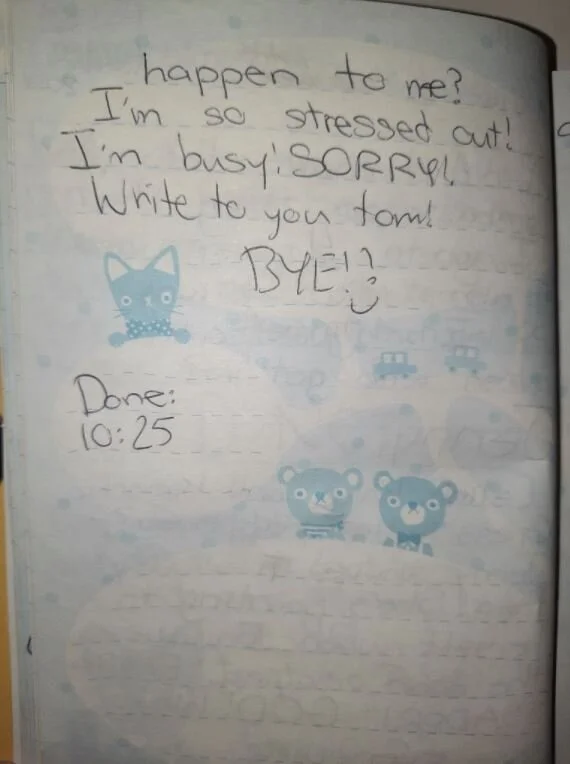 happen to me?
I'm so stressed out!
I'm busy! SORRY!
Write to you tom!
BYE!!
Done:
10:25